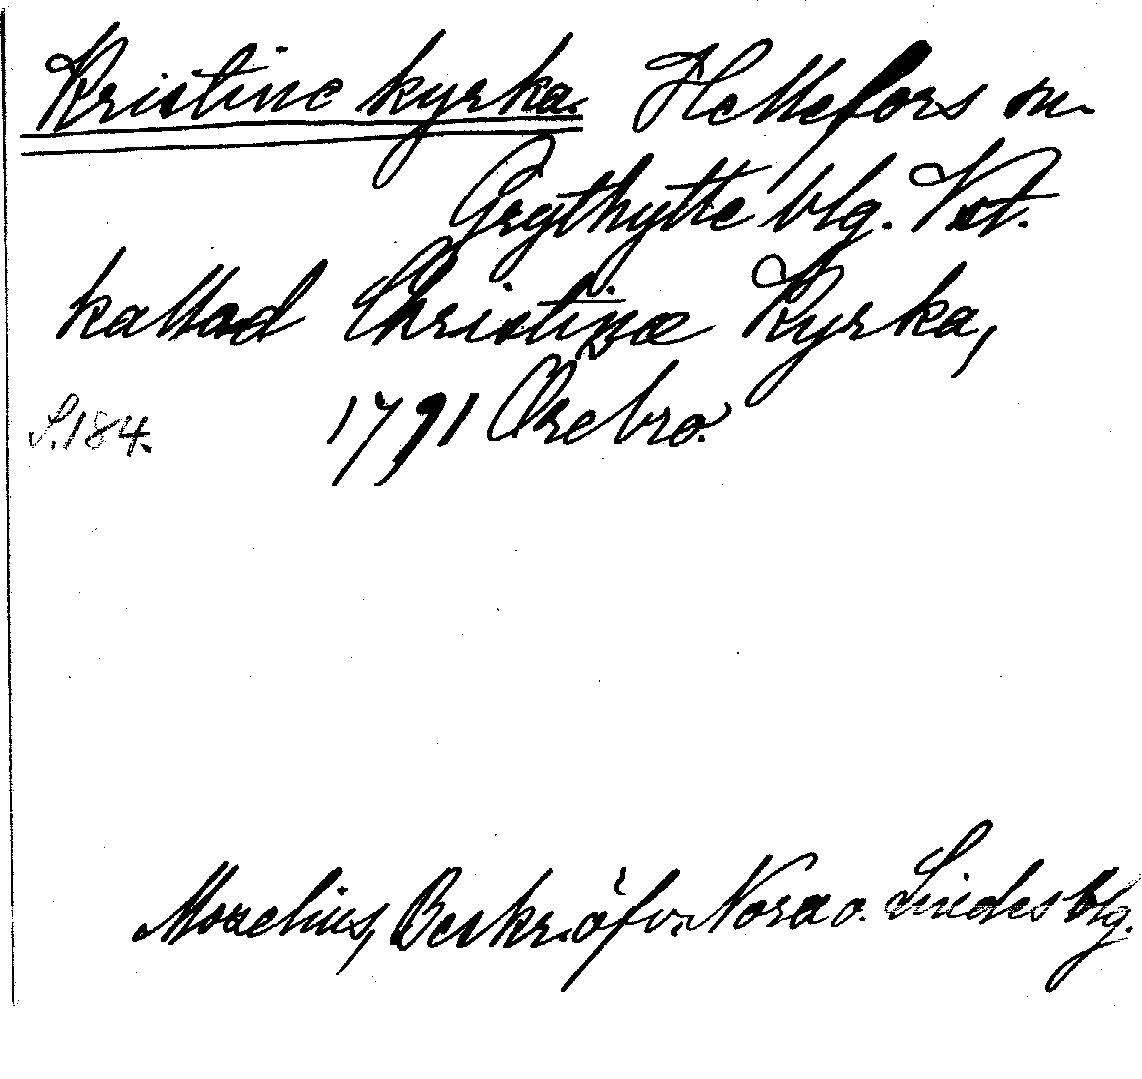 Kristine kyrka. Hellefors sn
Grythytte blg. Vstm.
kallad Christinæ Kyrka,
S. 184. 1791 Örebro.
Morælius, Beskr. öfv. Nora o. Lindes blg.